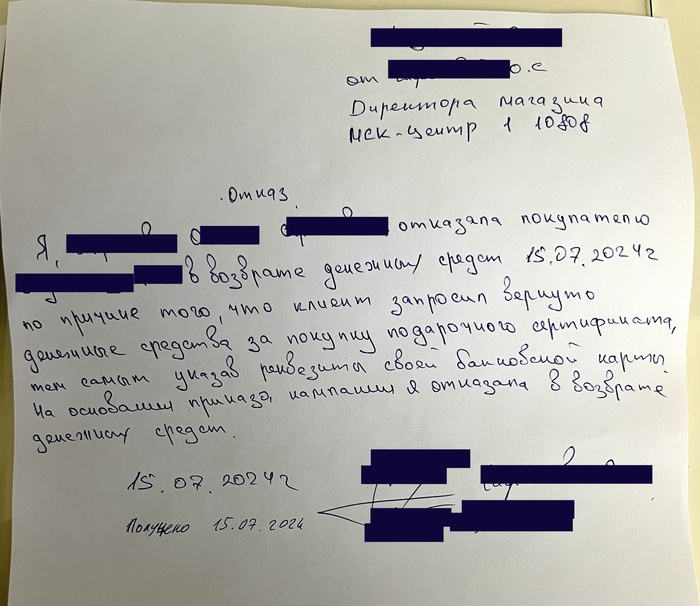 от о.с
Директора магазина
МСК-Центр 1 10808
Отказ.
Я, отказала покупателю
в возврате денежных средст 15.07.2024г
по причине того, что клиент запросил вернуто
денежные средства за покупку подарочного сертификата,
тем самым указав реквезиты своей банковской карты
На основании приказа, кампании я отказала в возврате
денежных средст.
15.07.2024г
Получено 15.07.2024